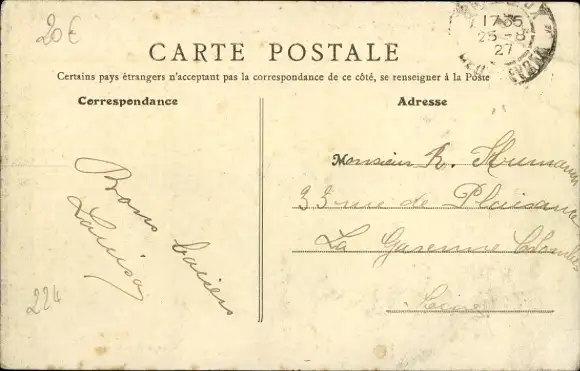 20€
17 35
25 -8
27
CARTE POSTALE
Certains pays étrangers n'acceptant pas la correspondance de ce côté, se renseigner à la Poste
Correspondance
Adresse
Bons baisers
Louisa
224
Monsieur R.
33 rue de Plaisance
La Garenne Colombes
Seine